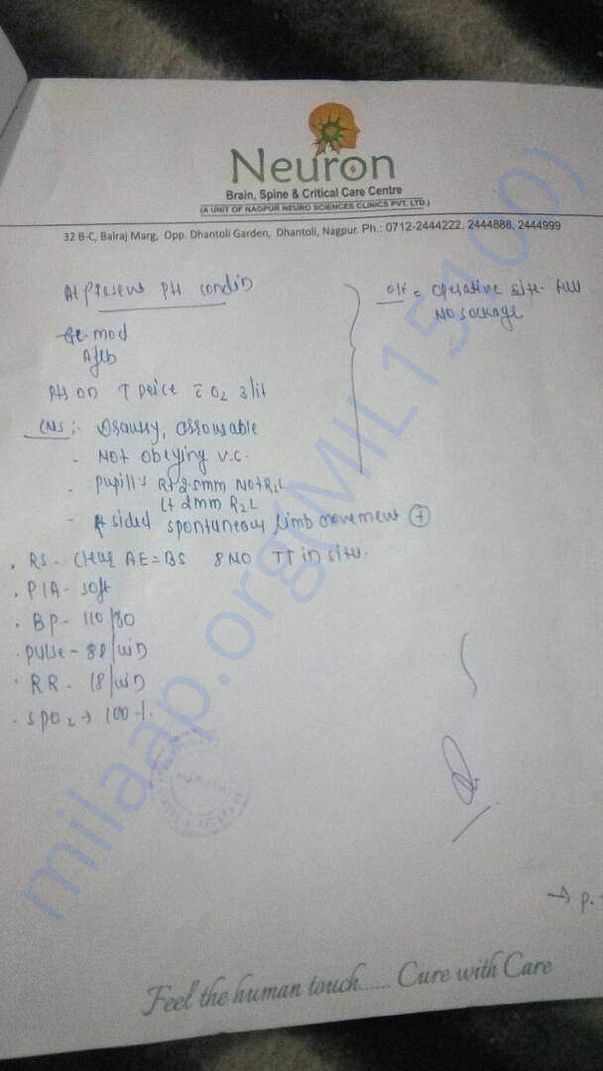 Neuron
Brain, Spine & Critical Care Centre
(A UNIT OF NAGPUR NEURO SCIENCES CLINICS PVT. LTD.)
32 B-C, Balraj Marg, Opp. Dhantoli Garden, Dhantoli, Nagpur. Ph.: 0712-2444222, 2444888, 2444999
At present Pt condin
Ge-mod
Afeb
Pt on T peice c̄ O2 3lit
CNS :- Drausy, arrousable
- Not obeying v.c.
- Pupills Rt 2.5mm NotR2L
Lt 2mm R2L
- Rt sided spontaneous limb movement +
. RS - Clear AE=BS 8 NO TT in situ.
. P/A - soft
. BP - 110/80
. pulse - 88/min
. RR - 18/min
. SPO2 → 100 %.
O/E = operative site - full
NO soakage
→ P.
Feel the human touch...... Cure with Care
milaap.org(MIL15100)